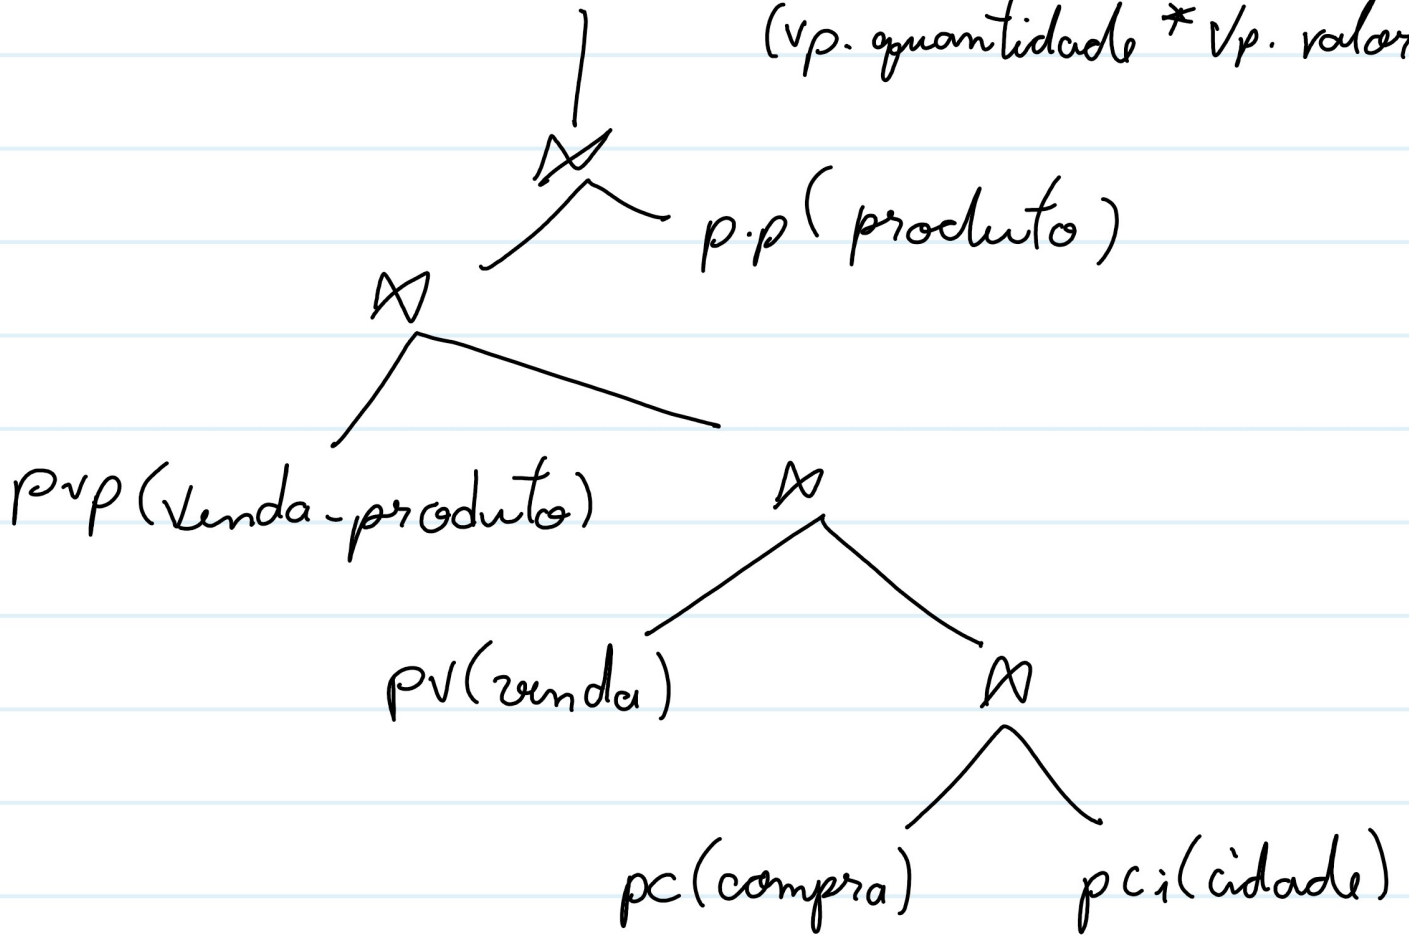 (vp. quantidade * Vp. valor
⋈
p.p(produto)
⋈
pvp(venda-produto)
⋈
pv(venda)
⋈
pc(compra)
pci(cidade)